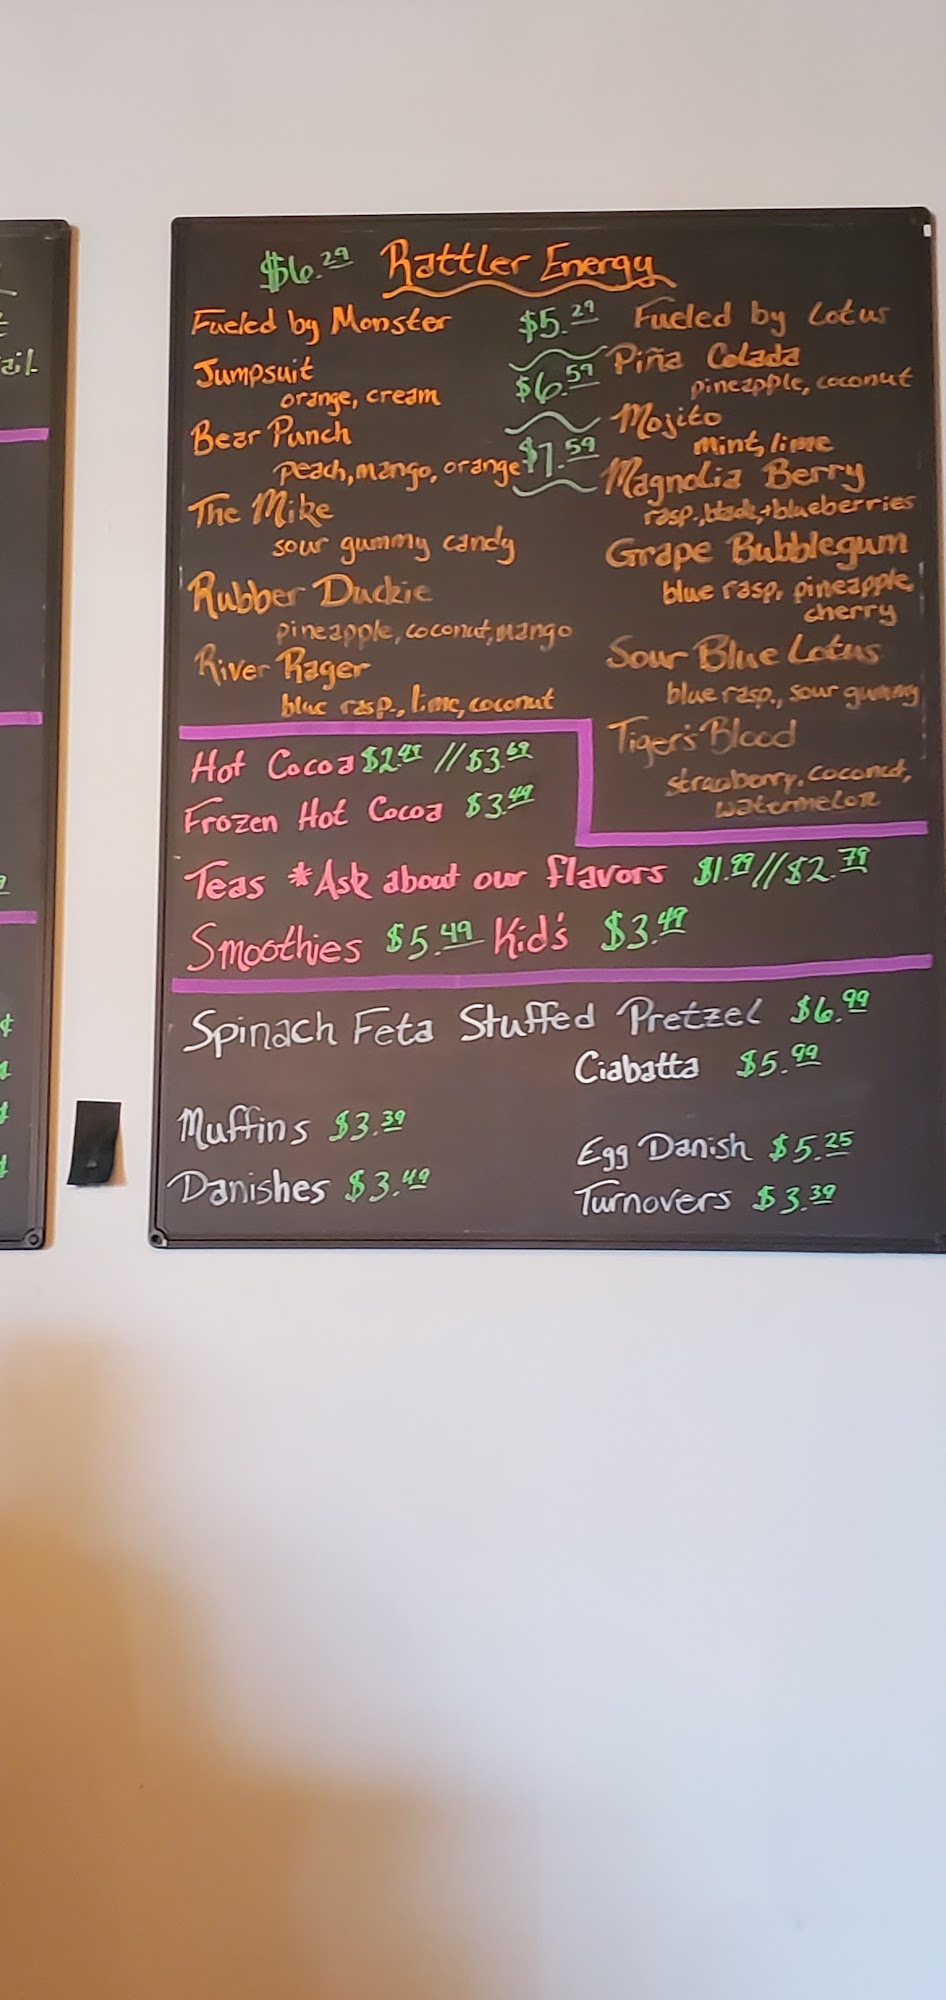 $6.29 Rattler Energy
Fueled by Monster
Jumpsuit
orange, cream
Bear Punch
peach, mango, orange
The Mike
sour gummy candy
Rubber Duckie
pineapple, coconut, mango
River Rager
blue rasp., lime, coconut
$5.29
$6.59
$7.59
Fueled by Lotus
Piña Colada
pineapple, coconut
Mojito
mint, lime
Magnolia Berry
rasp., black, + blueberries
Grape Bubblegum
blue rasp, pineapple,
cherry
Sour Blue Lotus
blue rasp., sour gummy
Tiger's Blood
strawberry, coconut,
watermelon
Hot Cocoa $2.49 // $3.69
Frozen Hot Cocoa $3.49
Teas *Ask about our flavors $1.99 // $2.79
Smoothies $5.49 Kid's $3.49
Spinach Feta Stuffed Pretzel $6.99
Ciabatta $5.99
Muffins $3.39
Danishes $3.49
Egg Danish $5.25
Turnovers $3.39